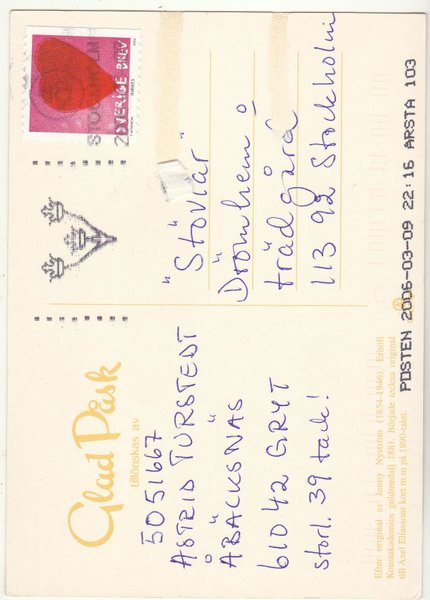 Glad Påsk
tillönskas av
5051667
ASTRID TURSTEDT
ÅBÄCKSNÄS
61042 GRYT
storl. 39 tack!
SVERIGE BREV
"Stövlar"
Drömhem o
trädgård
113 92 Stockholm
POSTEN 2006-03-09 22:16 ÅRSTA 103
Efter original av Jenny Nyström (1854-1946). Erhöll
Konstakademins guldmedalj 1881. Började teckna original
till Axel Eliassons kort m.m på 1890-talet.